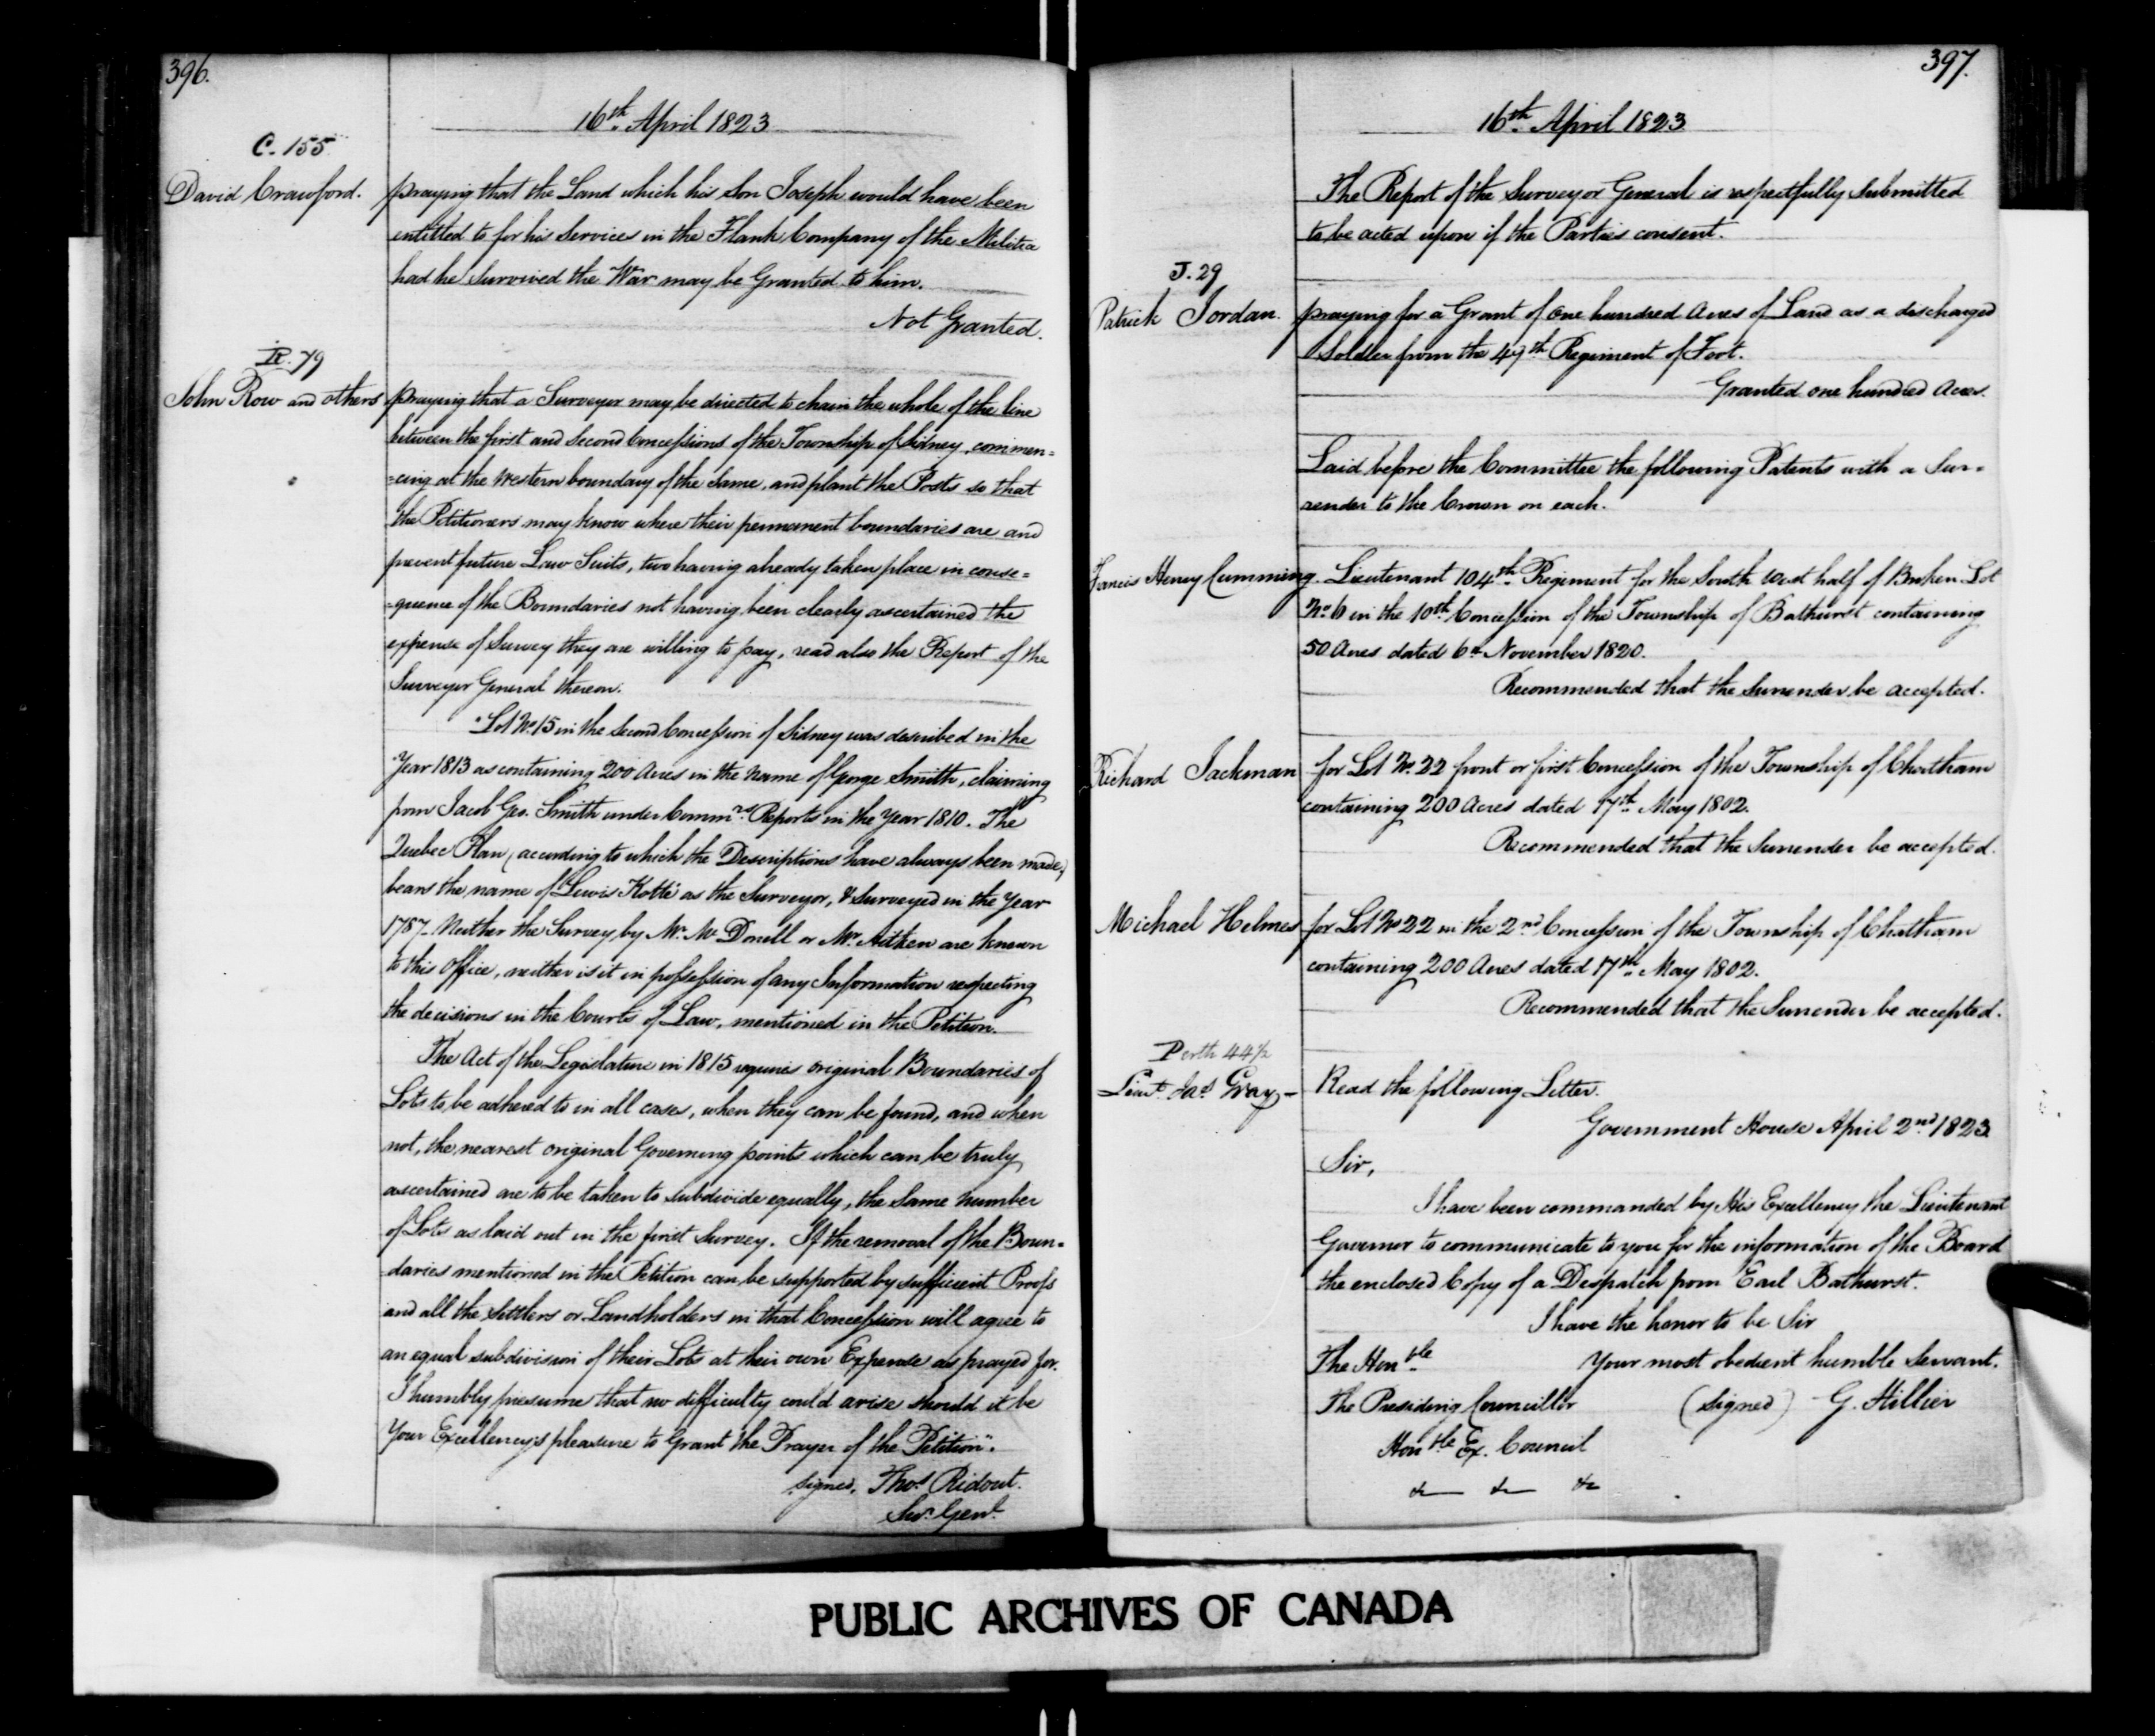 396.
16th April 1823
C. 155
David Crawford. praying that the Land which his Son Joseph would have been
entitled to for his Services in the Flank Company of the Militia
had he Survived the War may be Granted to him.
Not Granted.
R. 79
John Row and others praying that a Surveyor may be directed to chain the whole of the line
between the first and Second Concessions of the Township of Sidney, commen=
=cing at the Western boundary of the Same, and plant the Posts so that
the Petitioners may know where their permanent boundaries are and
prevent future Law Suits, two having already taken place in conse=
=quence of the Boundaries not having been clearly ascertained the
expense of Survey they are willing to pay, read also the Report of the
Surveyor General thereon.
"Lot No. 15 in the Second Concession of Sidney was described in the
Year 1813 as containing 200 Acres in the Name of George Smith, claiming
from Jacob Geo. Smith under Commrs Reports in the Year 1810. The
Quebec Plan (according to which the Descriptions have always been made,)
bears the name of "Lewis Kotté" as the Surveyor, & Surveyed in the Year
1787. Neither the Survey by Mr. Mc Donell or Mr. Aitken are known
to this Office, neither is it in possession of any Information respecting
the decisions in the Courts of Law, mentioned in the Petition.
The Act of the Legislature in 1815 requires original Boundaries of
Lots to be adhered to in all cases, when they can be found, and when
not, the nearest original Governing points which can be truly
ascertained are to be taken to subdivide equally, the Same number
of Lots as laid out in the first Survey. If the removal of the Boun=
=daries mentioned in the Petition can be supported by sufficient Proofs
and all the Settlers or Landholders in that Concession will agree to
an equal subdivision of their Lots at their own Expense as prayed for.
I humbly presume that no difficulty could arise should it be
Your Excellency's pleasure to Grant the Prayer of the Petition".
signed, Thos Ridout.
Sur. Genl.
397.
16th April 1823
The Report of the Surveyor General is respectfully Submitted
to be acted upon if the Parties consent.
J. 29
Patrick Jordan. praying for a Grant of One hundred Acres of Land as a discharged
Soldier from the 49th Regiment of Foot.
Granted one hundred Acres.
Laid before the Committee the following Patents with a Sur=
render to the Crown on each.
Francis Henry Cumming. Lieutenant 104th Regiment for the South West half of Broken Lot
No. 6 in the 10th Concession of the Township of Bathurst containing
50 Acres dated 6th November 1820.
Recommended that the Surrender be accepted.
Richard Jackman for Lot No. 22 front or first Concession of the Township of Chatham
containing 200 Acres dated 17th May 1802.
Recommended that the Surrender be accepted.
Michael Helmes for Lot No 22 in the 2nd Concession of the Township of Chatham
containing 200 Acres dated 17th May 1802.
Recommended that the Surrender be accepted.
Perth 44½
Lieut. Jas Gray - Read the following Letter.
Government House April 2nd 1823
Sir,
I have been commanded by His Excellency the Lieutenant
Governor to communicate to you for the information of the Board
the enclosed Copy of a Despatch from Earl Bathurst.
I have the honor to be Sir
The Honble Your most obedient humble Servant.
The Presiding Councillor (Signed) G. Hillier
Honble Ex. Council
&c &c &c
PUBLIC ARCHIVES OF CANADA